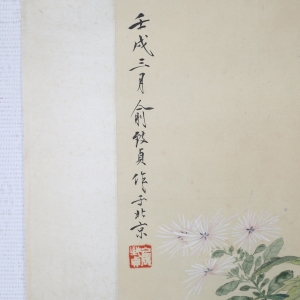 壬戌三月俞致貞作于北京